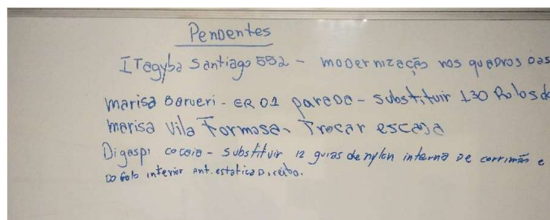 Pendentes
Itagyba Santiago 552 - modernização nos quadros das
marisa Barueri - ER 01 parada - substituir 130 Rolos d
marisa Vila Formosa. Trocar escada
Digaspi cocaia - substituir 12 guias de nylon interna de corrimão e
do lado inferior ant. estatica Direito.